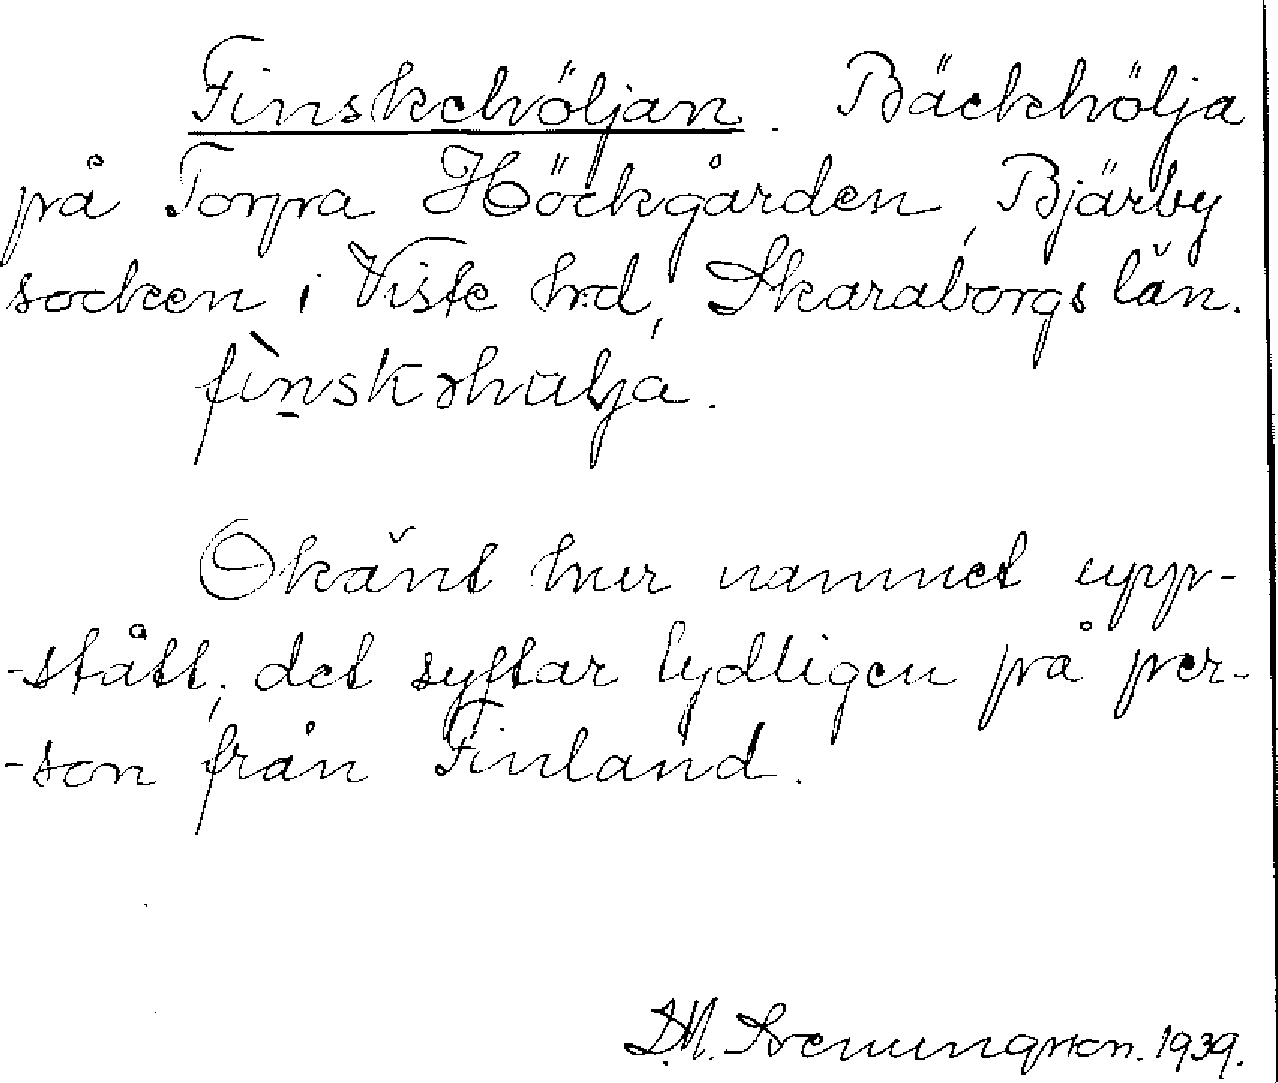 Finskehöljan. Bäckhölja
på Torpa Höckgården, Bjärby
socken i Viste hrd, Skaraborgs län.
fìnskəhulja.
Okänt hur namnet upp-
-stått, det syftar tydligen på per-
-son från Finland.
1939.